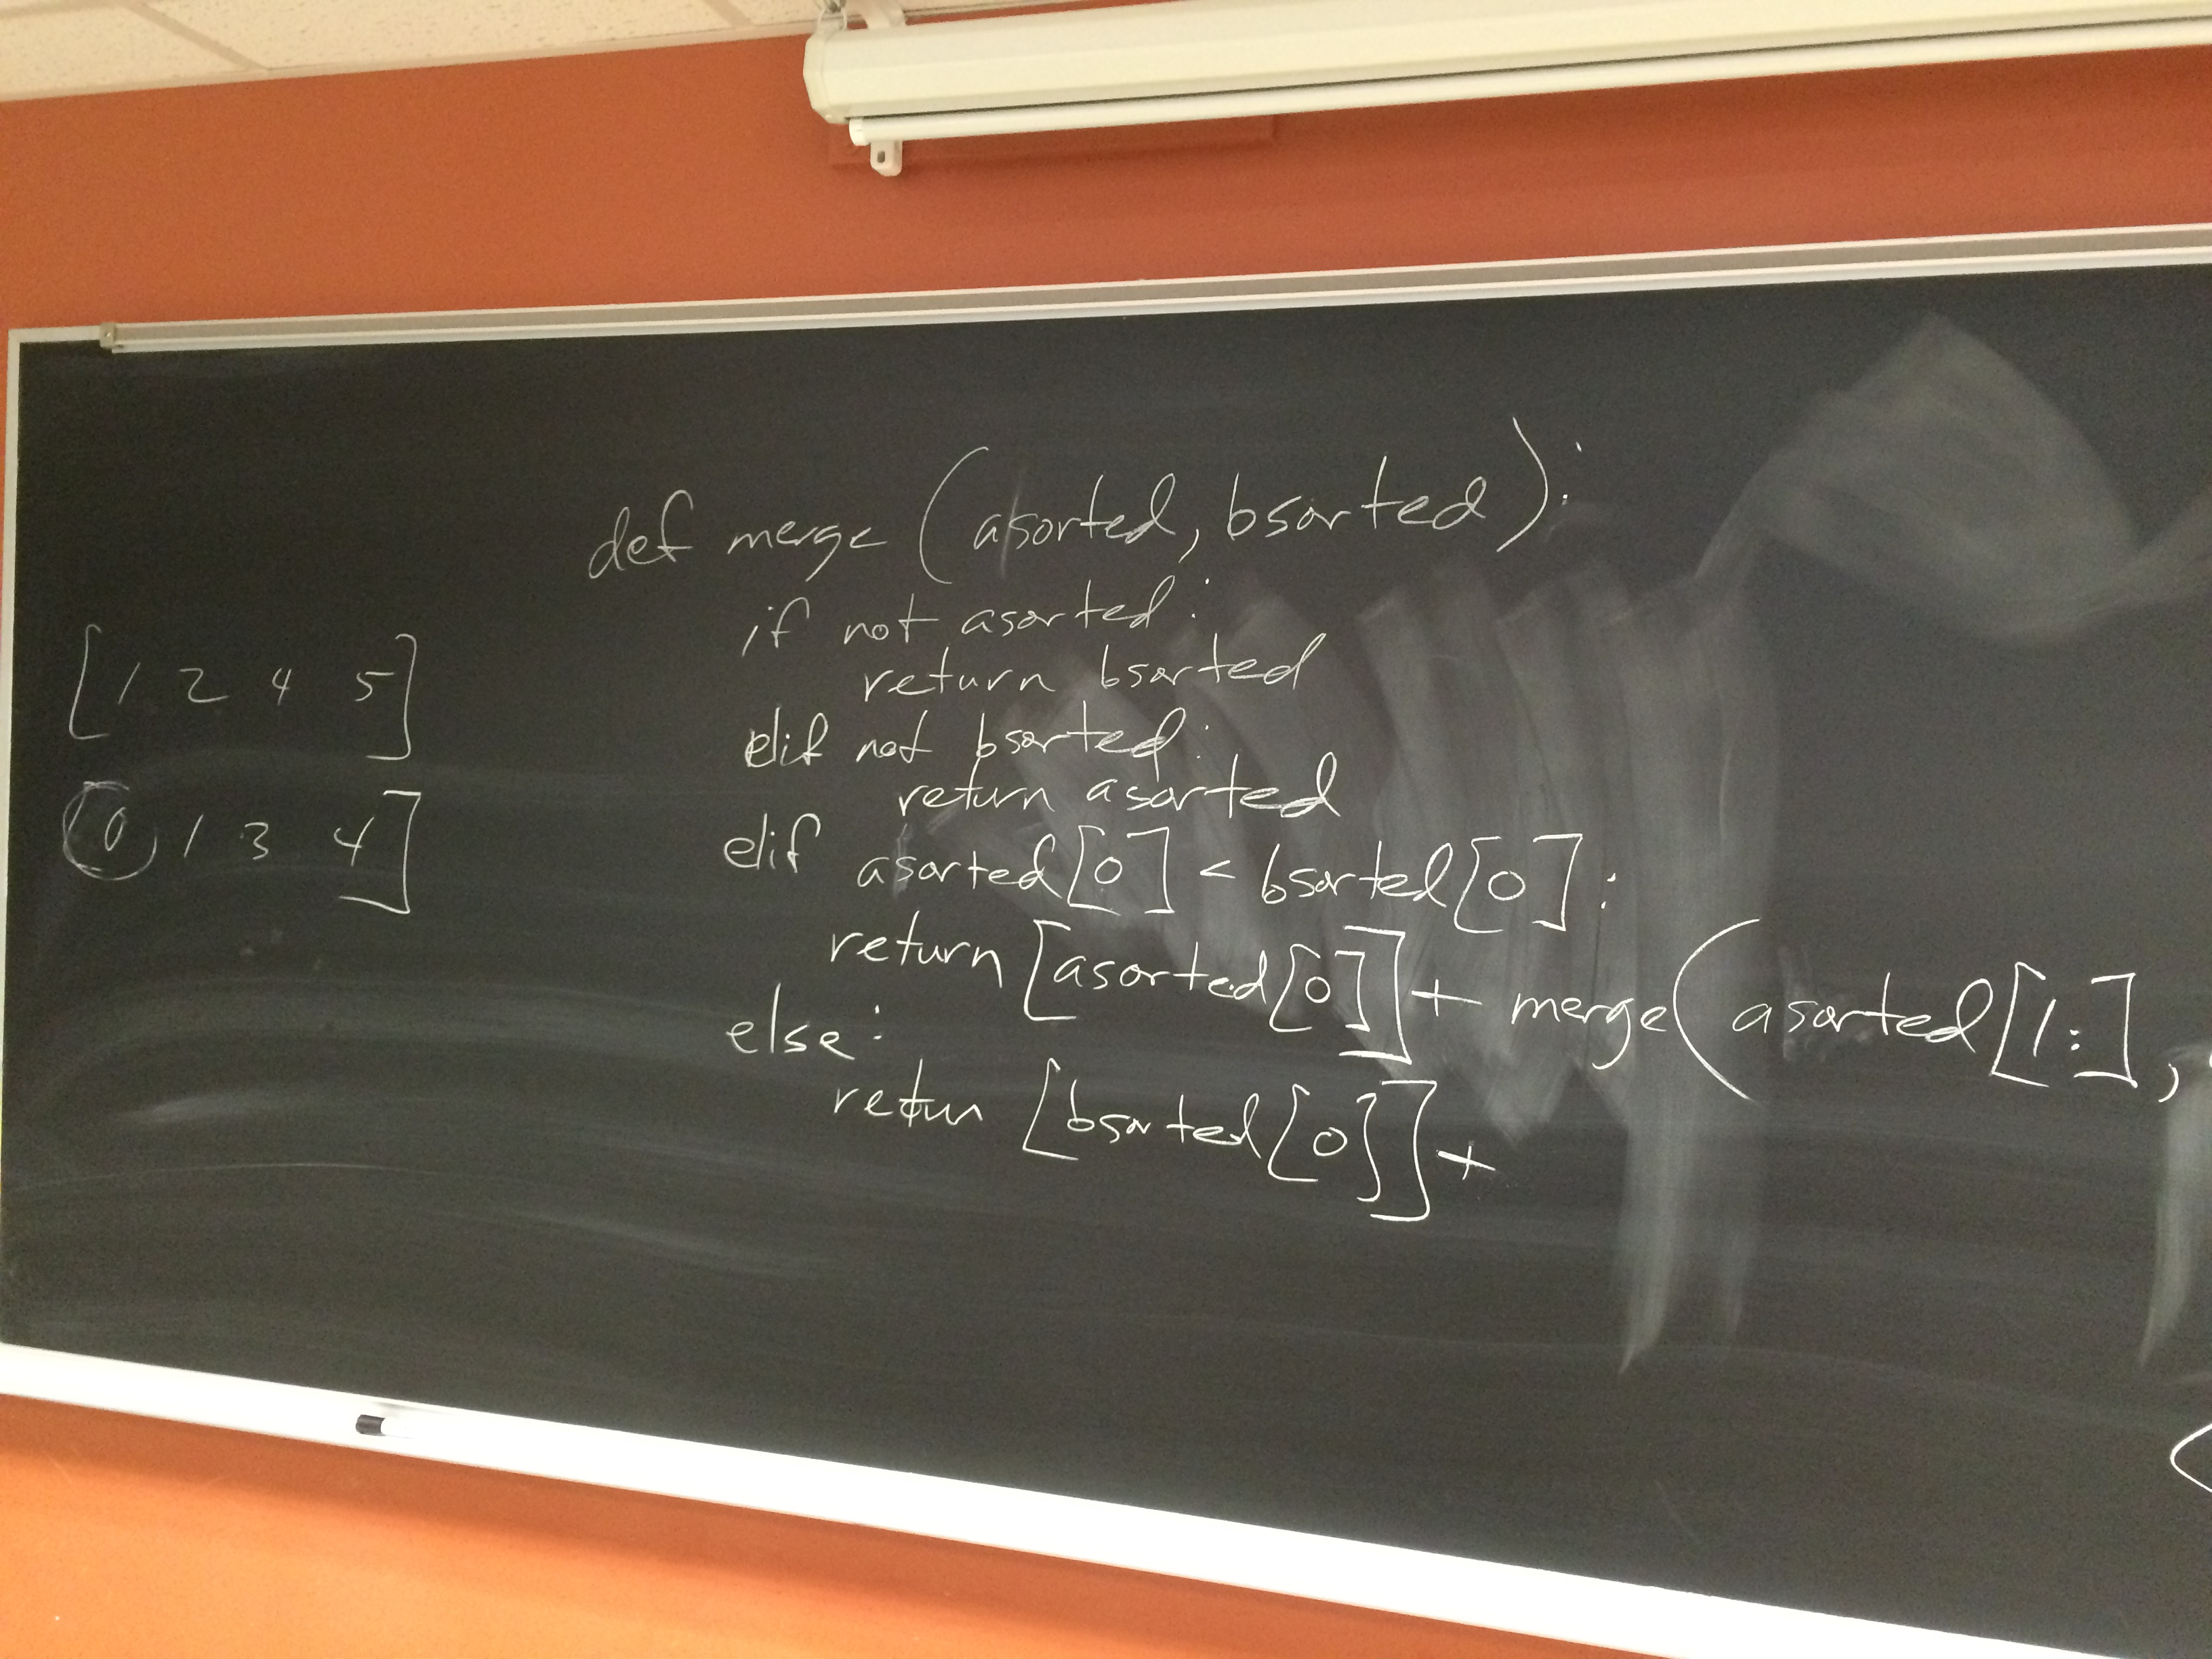 def merge (asorted, bsorted):
if not asorted:
return bsorted
elif not bsorted:
return asorted
elif asorted[0] < bsorted[0]:
return [asorted[0]] + merge(asorted[1:],
else:
return [bsorted[0]] +
[1 2 4 5]
0 1 3 4]